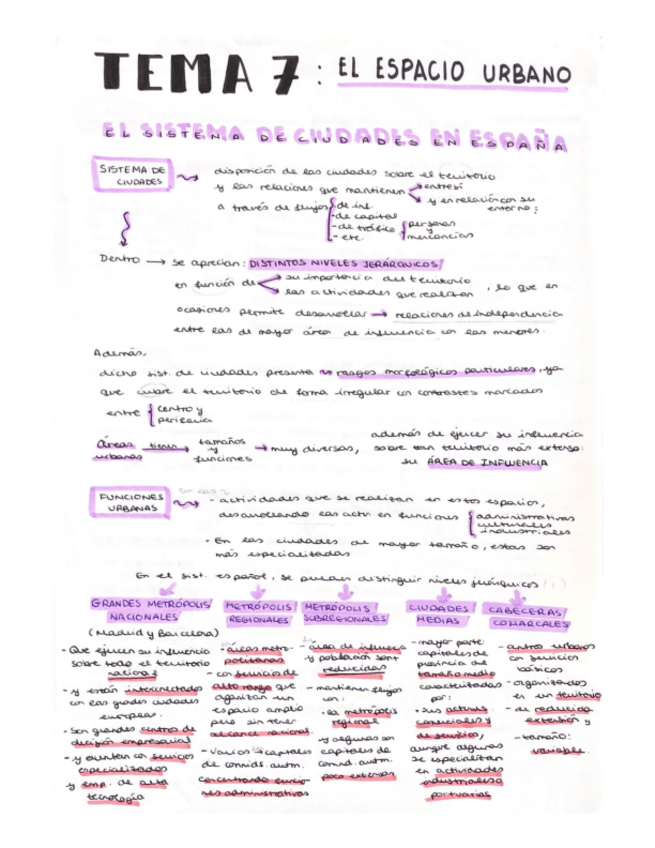 TEMA 7: EL ESPACIO URBANO
EL SISTEMA DE CIUDADES EN ESPAÑA
SISTEMA DE CIUDADES
disposición de las ciudades sobre el territorio
y las relaciones que mantienen entre sí
y en relación con su entorno;
a través de flujos
- de inf.
- de capital
- de tráfico personas y mercancías
- etc
Dentro → se aprecian: DISTINTOS NIVELES JERÁRQUICOS
en función de su importancia del territorio
las actividades que realizan, lo que en
ocasiones permite desarrollar → relaciones de independencia
entre las de mayor área de influencia con las menores.
Además,
dicho sist. de ciudades presenta rasgos morfológicos particulares, ya
que cubre el territorio de forma irregular con contrastes marcados
entre centro y periferia
áreas urbanas tienen tamaños y funciones → muy diversas,
además de ejercer su influencia
sobre un territorio más extenso:
su ÁREA DE INFLUENCIA
FUNCIONES URBANAS
- actividades que se realizan en estos espacios,
desarrollando las activ. en funciones administrativas
culturales
industriales
- En las ciudades de mayor tamaño, estas son
más especializadas
En el sist. español, se pueden distinguir niveles jerárquicos
GRANDES METRÓPOLIS NACIONALES
(Madrid y Barcelona)
- Que ejercen su influencia
sobre todo el territorio
nacional
- y están interconectadas
con las grandes ciudades
europeas.
- Son grandes centros de
decisión empresarial
- y cuentan con servicios
especializados
y emp. de alta
tecnología
METRÓPOLIS REGIONALES
- áreas metro-
politanas
- con servicios de
alto rango que
organizan un
espacio amplio
pero sin tener
alcance nacional.
- Varios capitales
de comnids. autm.
concentrando funcio-
nes administrativas
METRÓPOLIS SUBREGIONALES
- área de influencia
y población son
reducidas
- mantienen flujos
con:
- la metrópolis
regional
y algunas son
capitales de
comnid. autm.
poco extensas
CIUDADES MEDIAS
- mayor parte
capitales de
provincia de
tamaño medio
caracterizadas
por:
- sus activds.
comerciales y
de servicios,
aunque algunas
se especializan
en actividades
industriales o
portuarias
CABECERAS COMARCALES
- centros urbanos
con servicios
básicos
- organizados
en un territorio
- de reducida
extensión y
- tamaño:
variable.